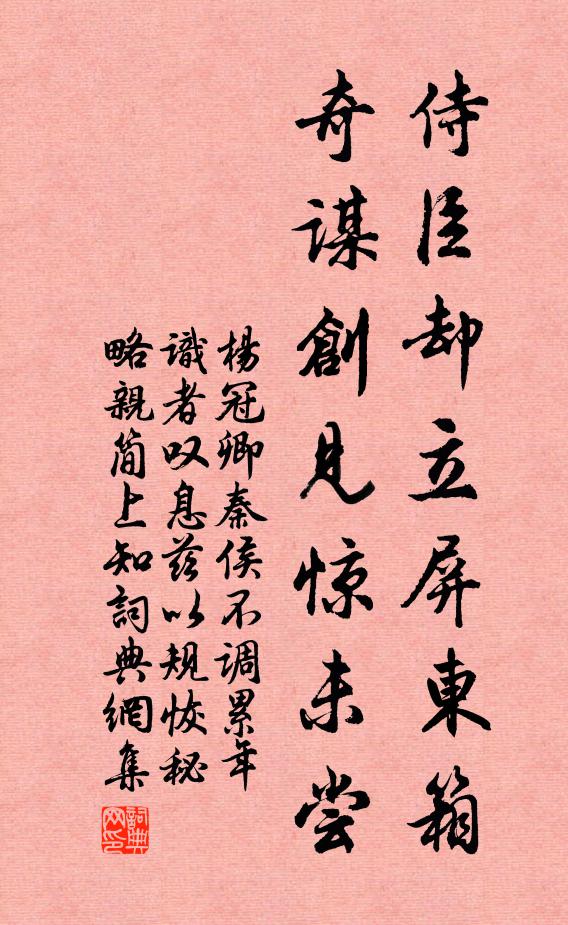 侍臣却立屏東箱
奇謀創見惊未尝
楊冠卿秦侯不调累年
識者叹息茲以規恢秘
略親简上知詞典網集
詞典网印